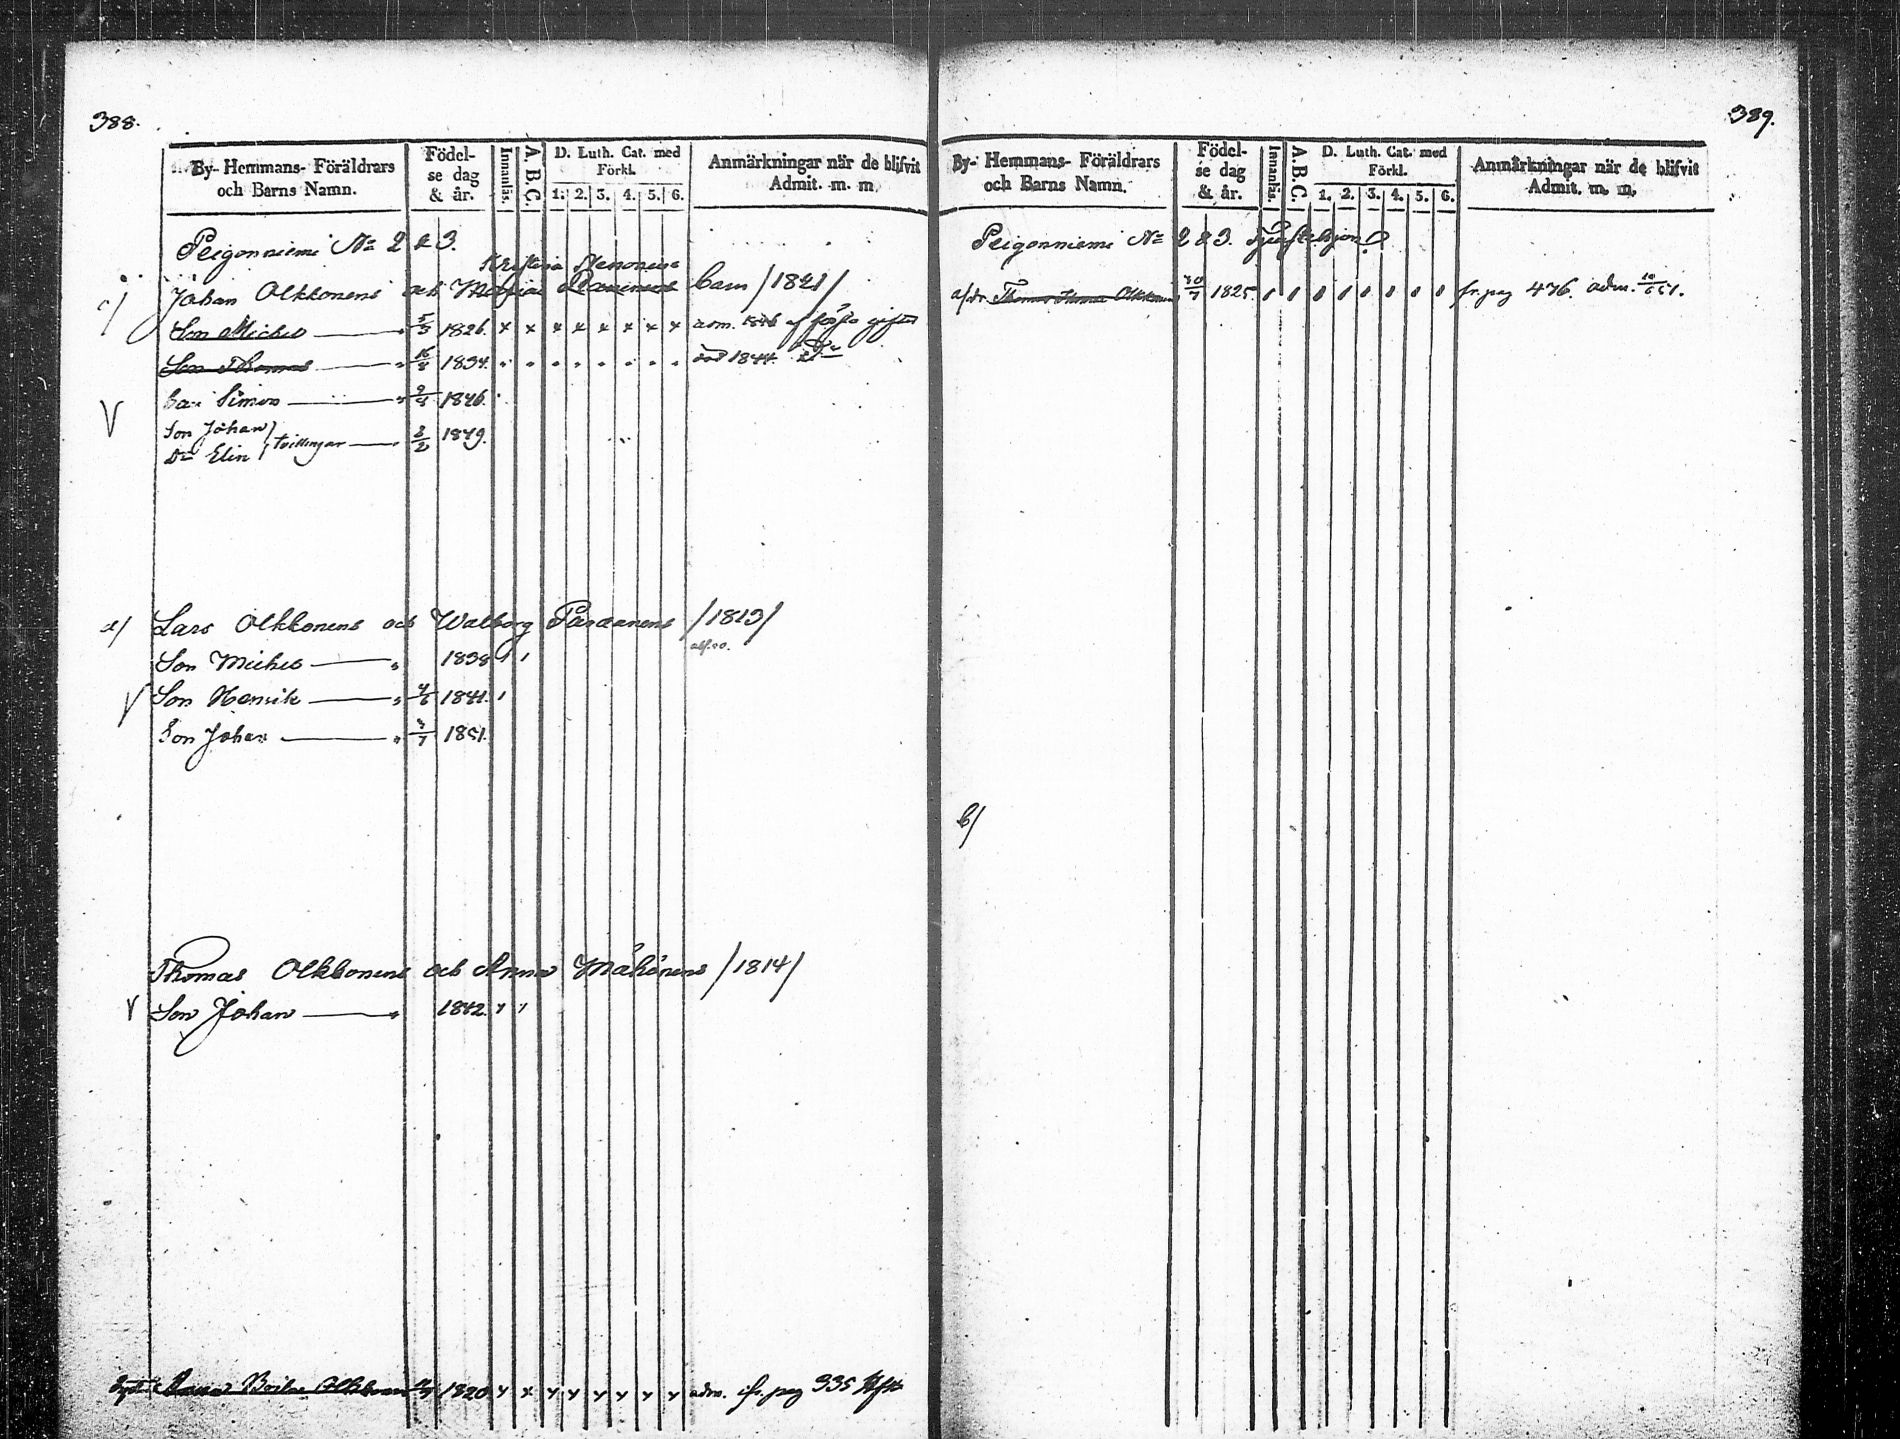 388.
By- Hemmans- Föräldrars och Barns Namn.
Födel- se dag & år.
Innanläs.
A. B. C.
D. Luth. Cat. med Förkl.
1. 2. 3. 4. 5. 6.
Anmärkningar när de blifvit Admit. m. m.
Peigonniemi No 2 & 3.
Kristina Nenonens
a/ Johan Olkkonens och Maria barn /1821/
Son Michel " 5/3 1826. x x x x x x x x adm. 1846
Son Thomas " 1834. 1844.
Simon " 1846.
Son Johan
Dr Elin tvillingar " 2/2 1849.
a/ Lars Olkkonens och Walborg Parsanens /1813/
Son Michel " 1838
Son Henrik " 1841.
Son Johan " 3/7 1851.
Thomas Olkkonens och Anna Mähönens /1814/
Son Johan " 1842.
Olkkonen 1820 adm. fr. pag 335
389.
By- Hemmans- Föräldrars och Barns Namn.
Födel- se dag & år.
Innanläs.
A. B. C.
D. Luth. Cat. med Förkl.
1. 2. 3. 4. 5. 6.
Anmärkningar när de blifvit Admit. m. m.
Peigonniemi No 2 & 3.
a/ dr Thomas Olkkonen 30/7 1825. fr. pag 476. adm. 51.
b/